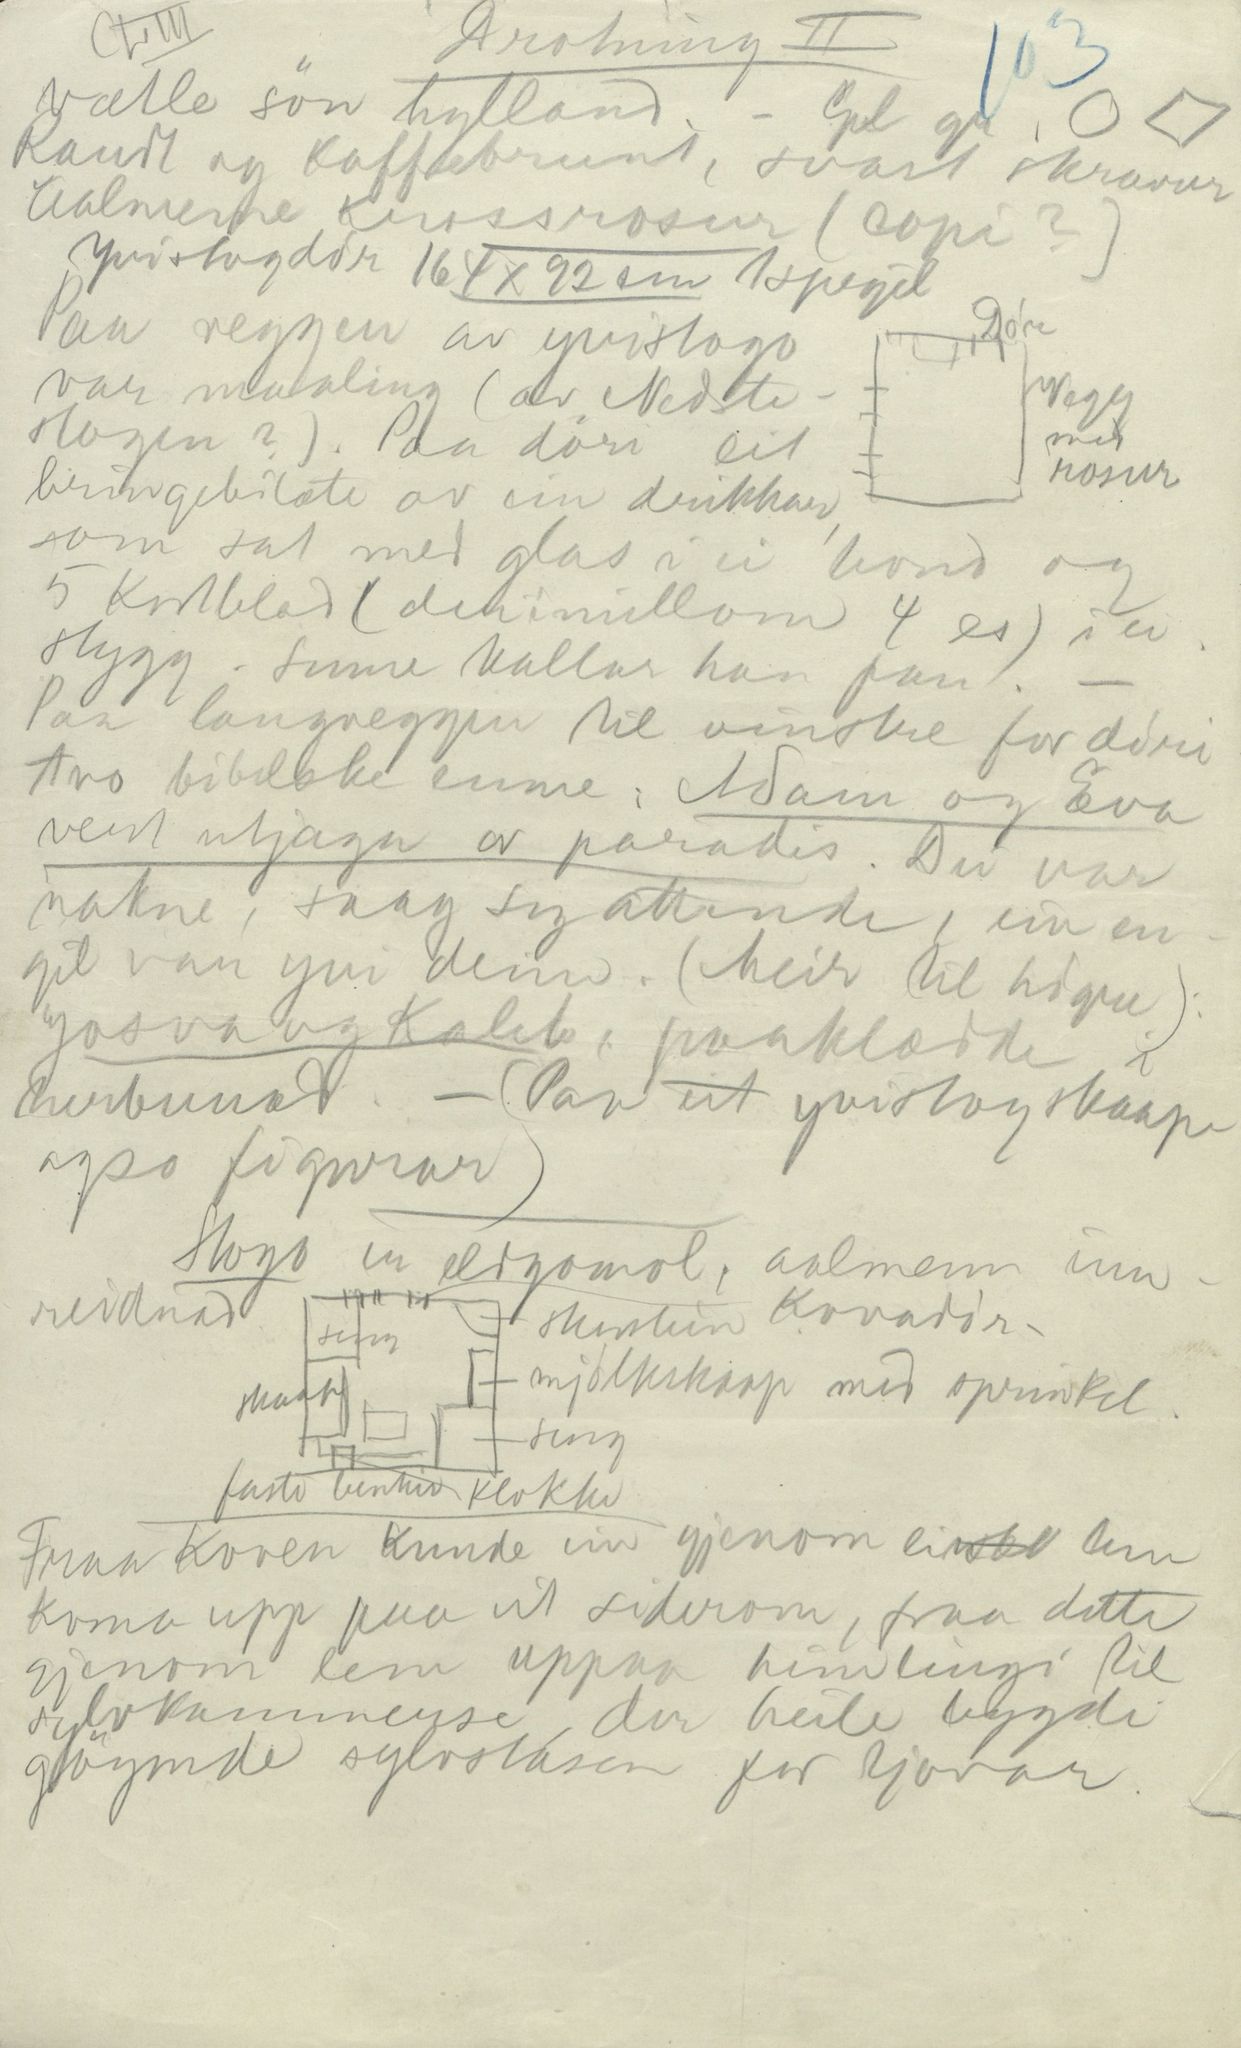 CLIII Drotning II 103
vætle sön hylland. – Gpl gr.
Raudt og kaffebrunt, svart skravur
Aalmenne krossrosur (copi?)
Yvistogdör 164 x 92 cm 1 spegel
Paa veggen av yvistogo
var maaling (av Nedste-
stogen?). Paa döri eit
bringebilæte av ein drikkar,
som sat med glas i ei hond og
5 kortblad (derimillom 4 es) i ei
stygg. Sume kallar han fan. –
Paa langveggen til vinstre for döri
tvo bibelske emne: Adam og Eva
vert utjaga or paradis. Dei var
nakne, saag seg attende, ein en-
gel var yvi deim. (heir til högre):
Josva og Kaleb, paaklædde i
herbunad. – (Paa eit yvistogskaap
ogso figurar)
Döri
Vegg
med
rosur
Stogo er eldgomol, aalmenn inn-
reidnad.
seng
skaap
skorstein Kovadör
mjölkskaap med sprinkel.
seng
faste benkir klokke
Fraa Koven kunde ein gjenom ein lem
koma upp paa eit siderom, fraa dette
gjenom lem uppaa himlingi til
sylvkammerse, der heile bygdi
glöymde sylvstasen for tjovar.